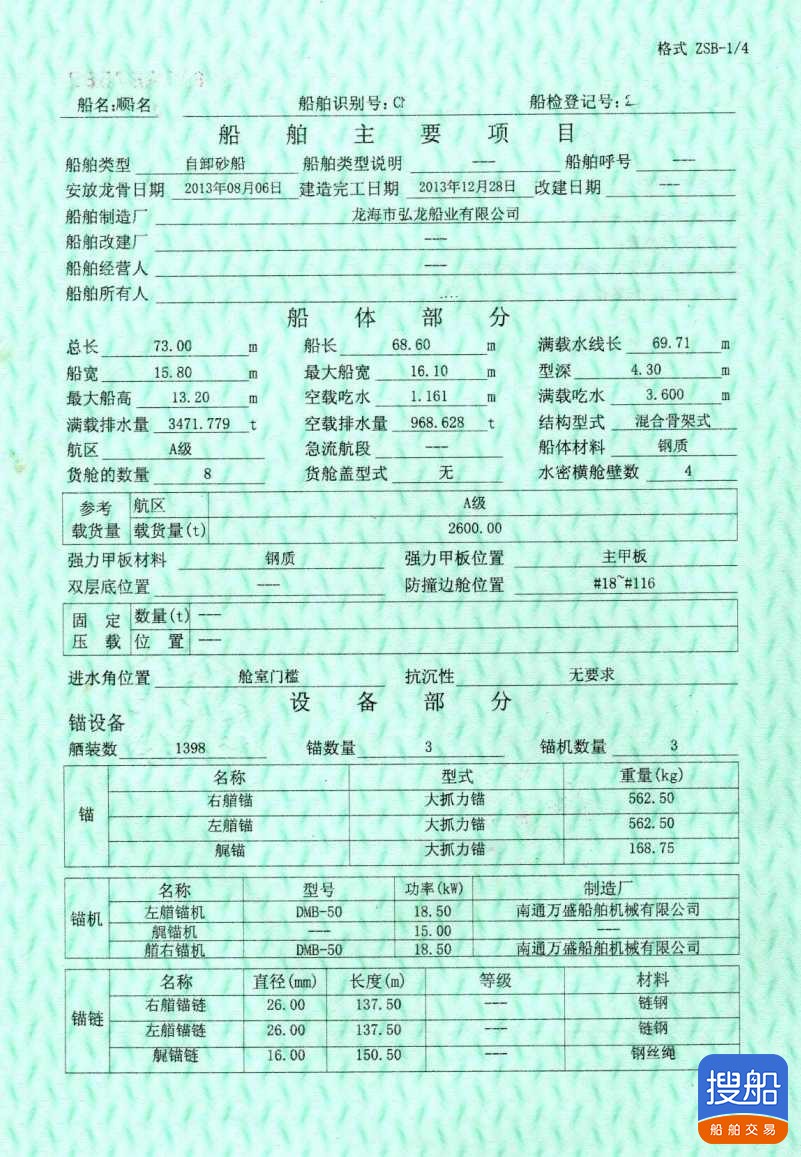 格式 ZSB-1/4
船名: 船名 船舶识别号: CN 船检登记号: 2
船舶主要项目
船舶类型 自卸砂船 船舶类型说明 --- 船舶呼号 ---
安放龙骨日期 2013年08月06日 建造完工日期 2013年12月28日 改建日期 ---
船舶制造厂 龙海市弘龙船业有限公司
船舶改建厂 ---
船舶经营人 ---
船舶所有人
船体部分
总长 73.00 m 船长 68.60 m 满载水线长 69.71 m
船宽 15.80 m 最大船宽 16.10 m 型深 4.30 m
最大船高 13.20 m 空载吃水 1.161 m 满载吃水 3.600 m
满载排水量 3471.779 t 空载排水量 968.628 t 结构型式 混合骨架式
航区 A级 急流航段 --- 船体材料 钢质
货舱的数量 8 货舱盖型式 无 水密横舱壁数 4
参考载货量 航区 A级
载货量(t) 2600.00
强力甲板材料 钢质 强力甲板位置 主甲板
双层底位置 --- 防撞边舱位置 #18~#116
固定压载 数量(t) ---
位置 ---
进水角位置 舱室门槛 抗沉性 无要求
设备部分
锚设备
舾装数 1398 锚数量 3 锚机数量 3
锚 名称 型式 重量(kg)
右艏锚 大抓力锚 562.50
左艏锚 大抓力锚 562.50
艉锚 大抓力锚 168.75
锚机 名称 型号 功率(kW) 制造厂
左艏锚机 DMB-50 18.50 南通万盛船舶机械有限公司
艉锚机 --- 15.00 ---
艏右锚机 DMB-50 18.50 南通万盛船舶机械有限公司
锚链 名称 直径(mm) 长度(m) 等级 材料
右艏锚链 26.00 137.50 --- 链钢
左艏锚链 26.00 137.50 --- 链钢
艉锚链 16.00 150.50 --- 钢丝绳
搜船
船舶交易